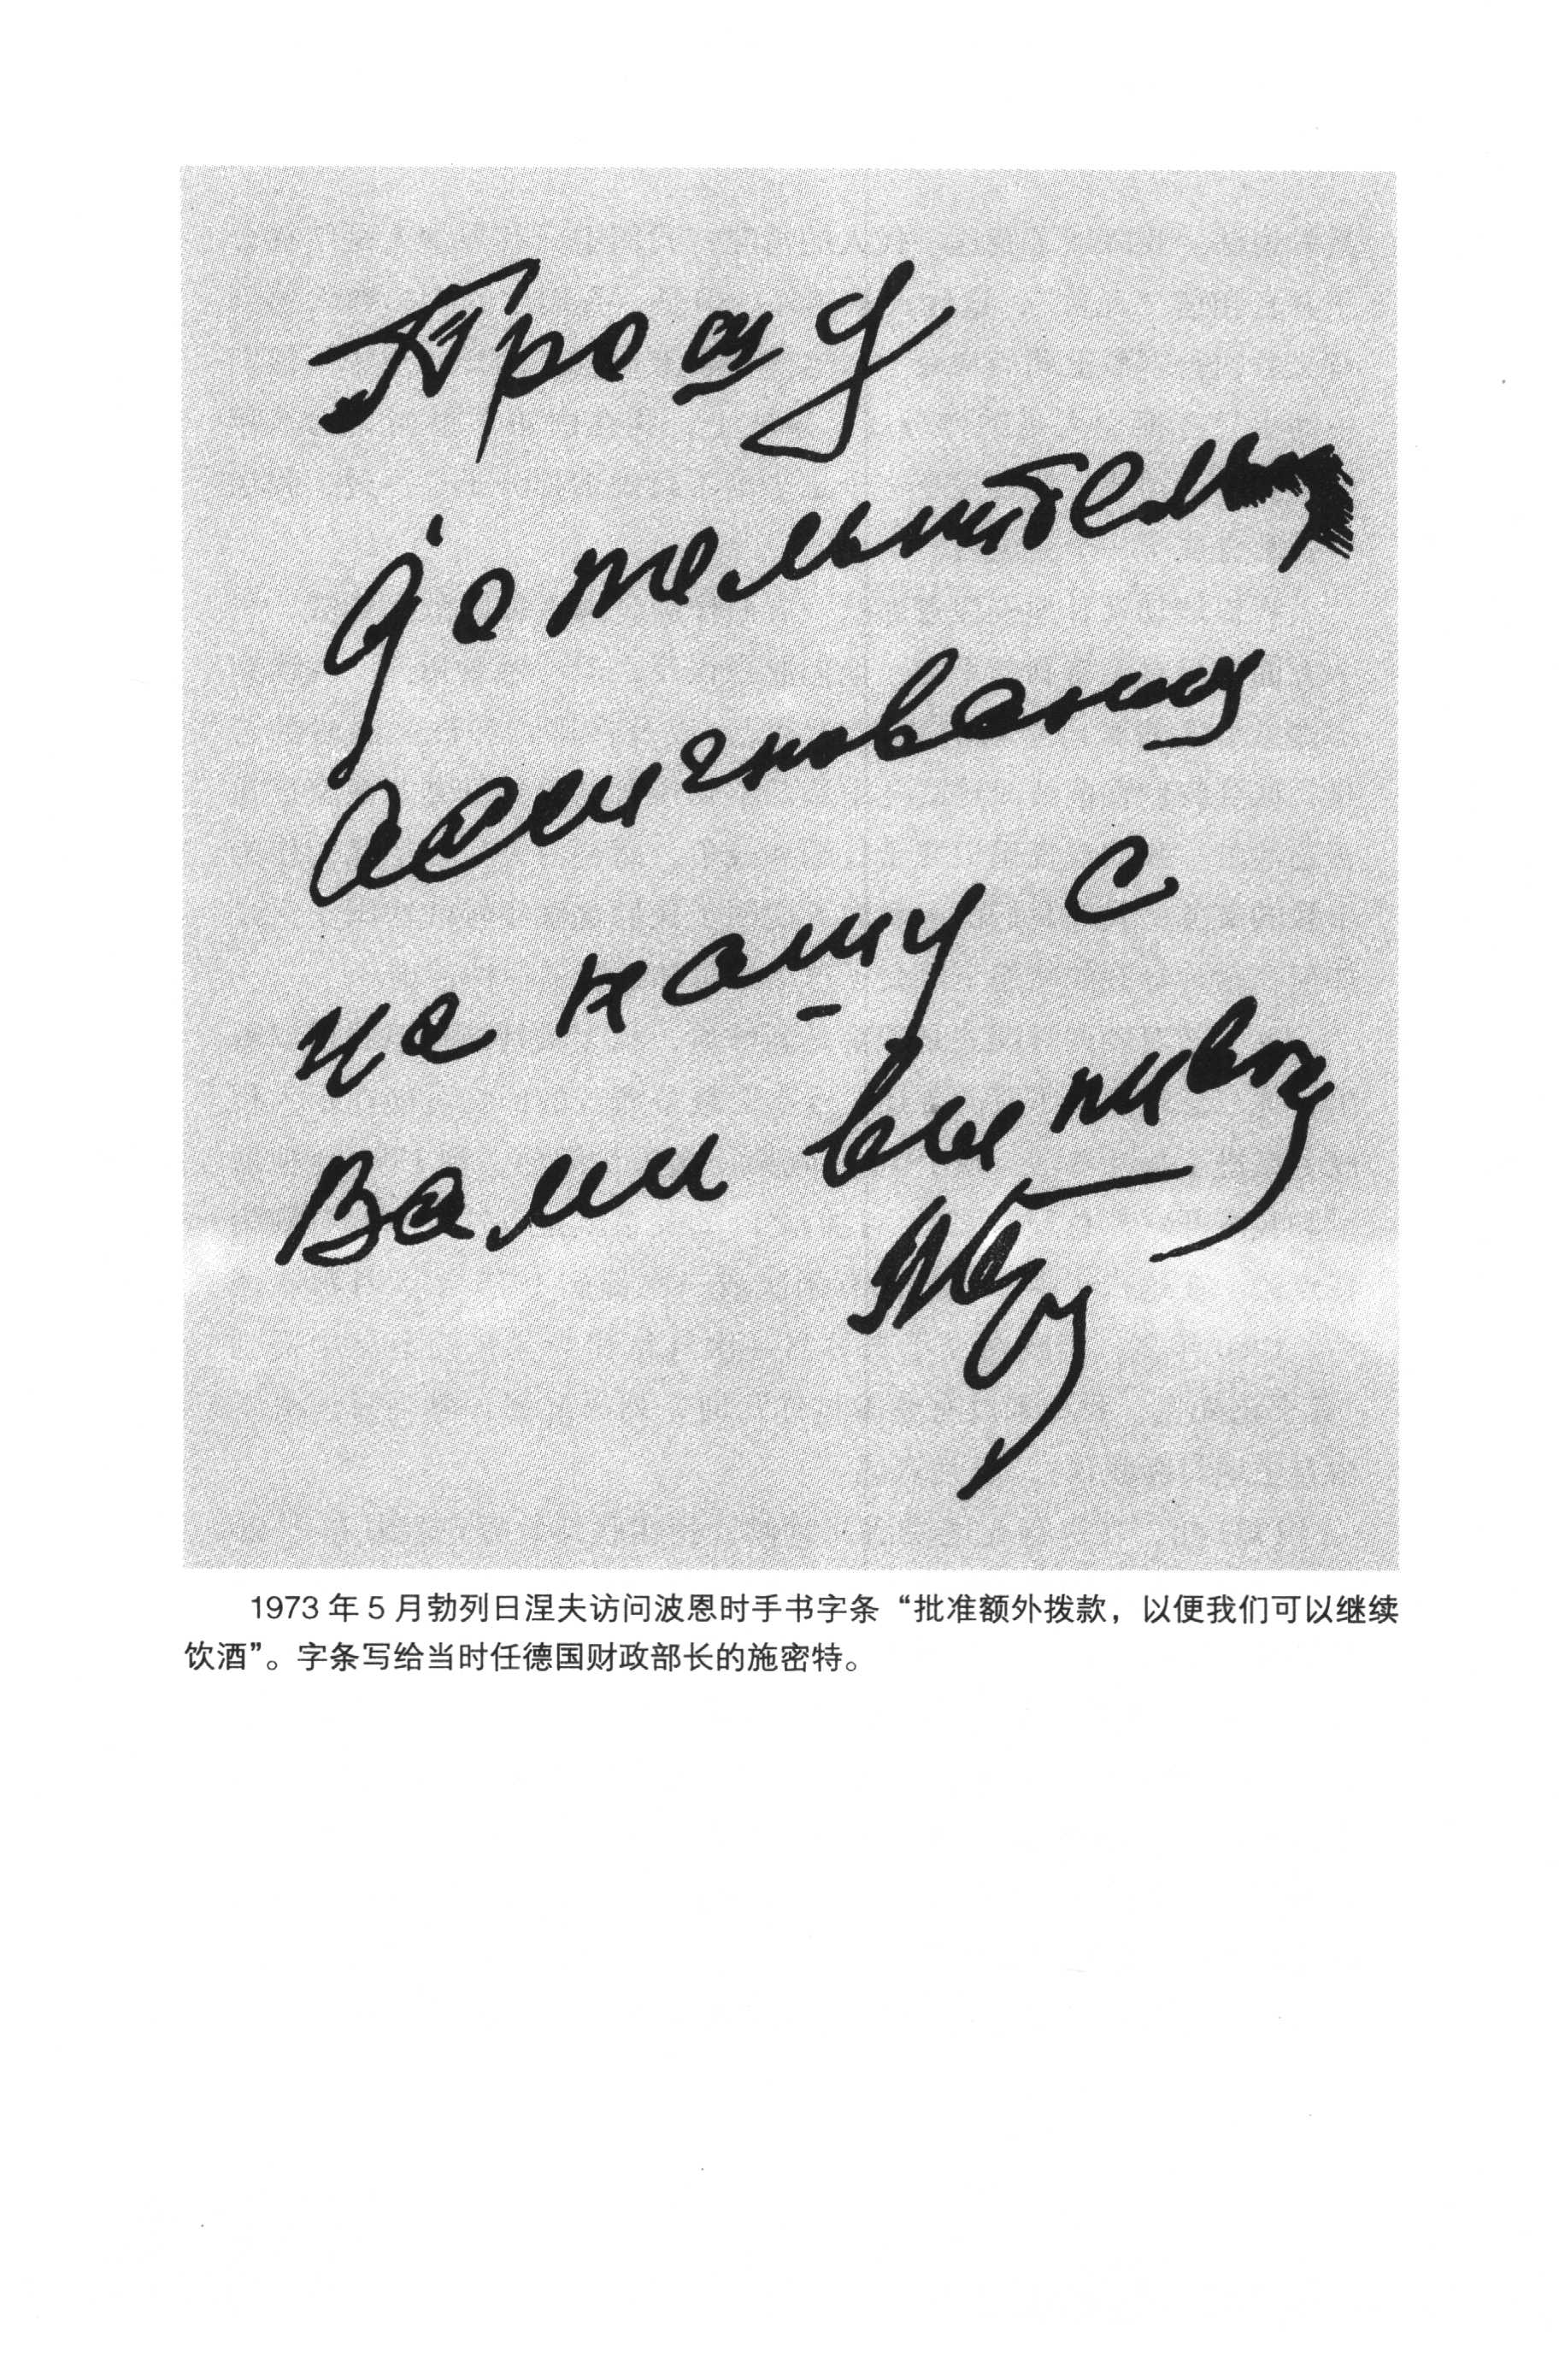 Прошу
дополнительных
ассигнований
на нашу с
Вами выпивку
1973 年 5 月勃列日涅夫访问波恩时手书字条“批准额外拨款，以便我们可以继续
饮酒”。字条写给当时任德国财政部长的施密特。